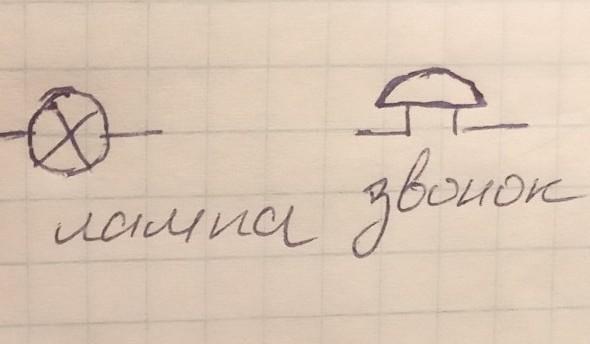 лампа звонок